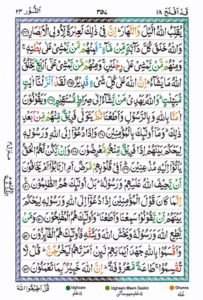 قَدْ اَفْلَحَ ١٨
٣٥٧
اَلنُّوْر ٢٤
يُقَلِّبُ اللّٰهُ الَّيْلَ وَالنَّهَارَ اِنَّ فِيْ ذٰلِكَ لَعِبْرَةً لِّاُولِي الْاَبْصَارِ
وَاللّٰهُ خَلَقَ كُلَّ دَآبَّةٍ مِّنْ مَّآءٍ فَمِنْهُمْ مَّنْ يَّمْشِيْ عَلٰى
بَطْنِهٖ وَمِنْهُمْ مَّنْ يَّمْشِيْ عَلٰى رِجْلَيْنِ وَمِنْهُمْ مَّنْ يَّمْشِيْ عَلٰٓى اَرْبَعٍ يَخْلُقُ
اللّٰهُ مَا يَشَآءُ اِنَّ اللّٰهَ عَلٰى كُلِّ شَيْءٍ قَدِيْرٌ لَقَدْ اَنْزَلْنَآ اٰيٰتٍ
مُّبَيِّنٰتٍ وَاللّٰهُ يَهْدِيْ مَنْ يَّشَآءُ اِلٰى صِرَاطٍ مُّسْتَقِيْمٍ وَيَقُوْلُوْنَ
اٰمَنَّا بِاللّٰهِ وَبِالرَّسُوْلِ وَاَطَعْنَا ثُمَّ يَتَوَلّٰى فَرِيْقٌ مِّنْهُمْ مِّنْ بَعْدِ
ذٰلِكَ وَمَآ اُولٰٓئِكَ بِالْمُؤْمِنِيْنَ وَاِذَا دُعُوْٓا اِلَى اللّٰهِ وَرَسُوْلِهٖ
لِيَحْكُمَ بَيْنَهُمْ اِذَا فَرِيْقٌ مِّنْهُمْ مُّعْرِضُوْنَ وَاِنْ يَّكُنْ لَّهُمُ الْحَقُّ يَاْتُوْٓا
اِلَيْهِ مُذْعِنِيْنَ اَفِيْ قُلُوْبِهِمْ مَّرَضٌ اَمِ ارْتَابُوْٓا اَمْ يَخَافُوْنَ
اَنْ يَّحِيْفَ اللّٰهُ عَلَيْهِمْ وَرَسُوْلُهٗ بَلْ اُولٰٓئِكَ هُمُ الظّٰلِمُوْنَ اِنَّمَا
كَانَ قَوْلَ الْمُؤْمِنِيْنَ اِذَا دُعُوْٓا اِلَى اللّٰهِ وَرَسُوْلِهٖ لِيَحْكُمَ
بَيْنَهُمْ اَنْ يَّقُوْلُوْا سَمِعْنَا وَاَطَعْنَا وَاُولٰٓئِكَ هُمُ الْمُفْلِحُوْنَ وَمَنْ
يُّطِعِ اللّٰهَ وَرَسُوْلَهٗ وَيَخْشَ اللّٰهَ وَيَتَّقْهِ فَاُولٰٓئِكَ هُمُ الْفَآئِزُوْنَ
وَاَقْسَمُوْا بِاللّٰهِ جَهْدَ اَيْمَانِهِمْ لَئِنْ اَمَرْتَهُمْ لَيَخْرُجُنَّ قُلْ لَّا
تُقْسِمُوْا طَاعَةٌ مَّعْرُوْفَةٌ اِنَّ اللّٰهَ خَبِيْرٌ بِمَا تَعْمَلُوْنَ
Idghaam
Idghaam Meem Saakin
Ghunna